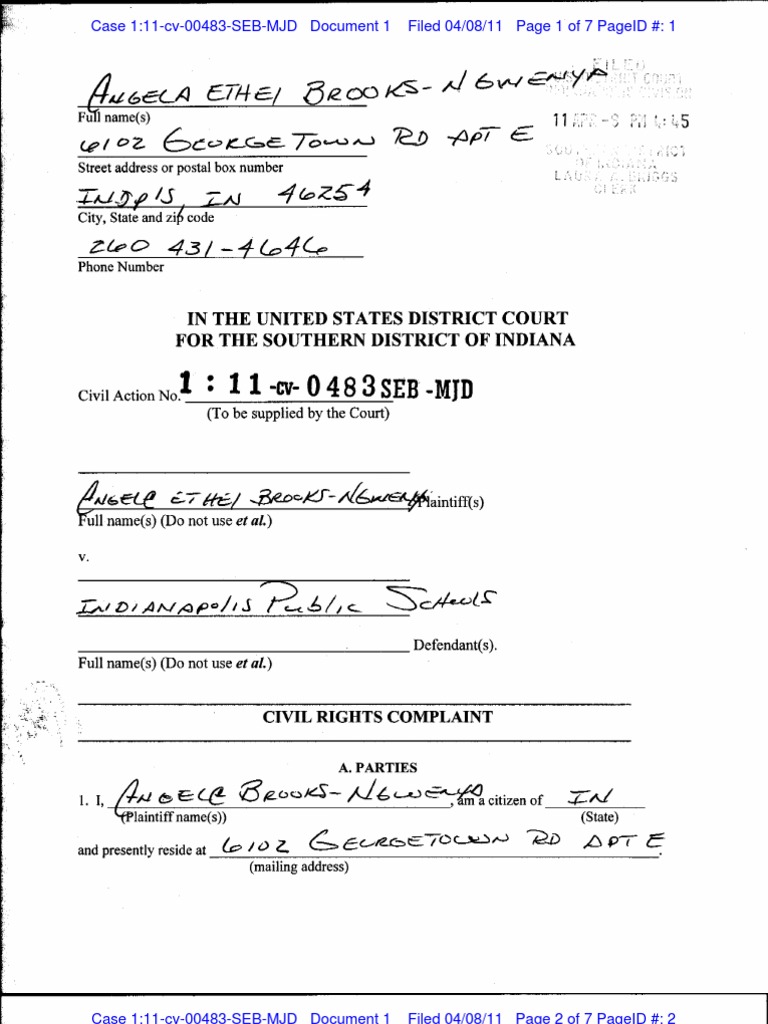 Case 1:11-cv-00483-SEB-MJD Document 1 Filed 04/08/11 Page 1 of 7 PageID #: 1
ANGELA ETHEl BROOKS-NGWENYA
FILED
Full name(s)
11 APR -8 PM 4:45
6102 GEORGETOWN RD APT E
Street address or postal box number
SOUTHERN DISTRICT
OF INDIANA
LAURA A. BRIGGS
CLERK
INDPlS, IN 46254
City, State and zip code
260 431-4646
Phone Number
IN THE UNITED STATES DISTRICT COURT
FOR THE SOUTHERN DISTRICT OF INDIANA
Civil Action No. 1:11-cv-0483 SEB-MJD
(To be supplied by the Court)
ANGELA ETHEl BROOKS-NGWENYA Plaintiff(s)
Full name(s) (Do not use et al.)
v.
INDIANAPOlIS Public Schools
Defendant(s).
Full name(s) (Do not use et al.)
CIVIL RIGHTS COMPLAINT
A. PARTIES
1. I, ANGELA BROOKS-NGWENYA, am a citizen of IN
(Plaintiff name(s)) (State)
and presently reside at 6102 GEORGETOWN RD APT E.
(mailing address)
Case 1:11-cv-00483-SEB-MJD Document 1 Filed 04/08/11 Page 2 of 7 PageID #: 2